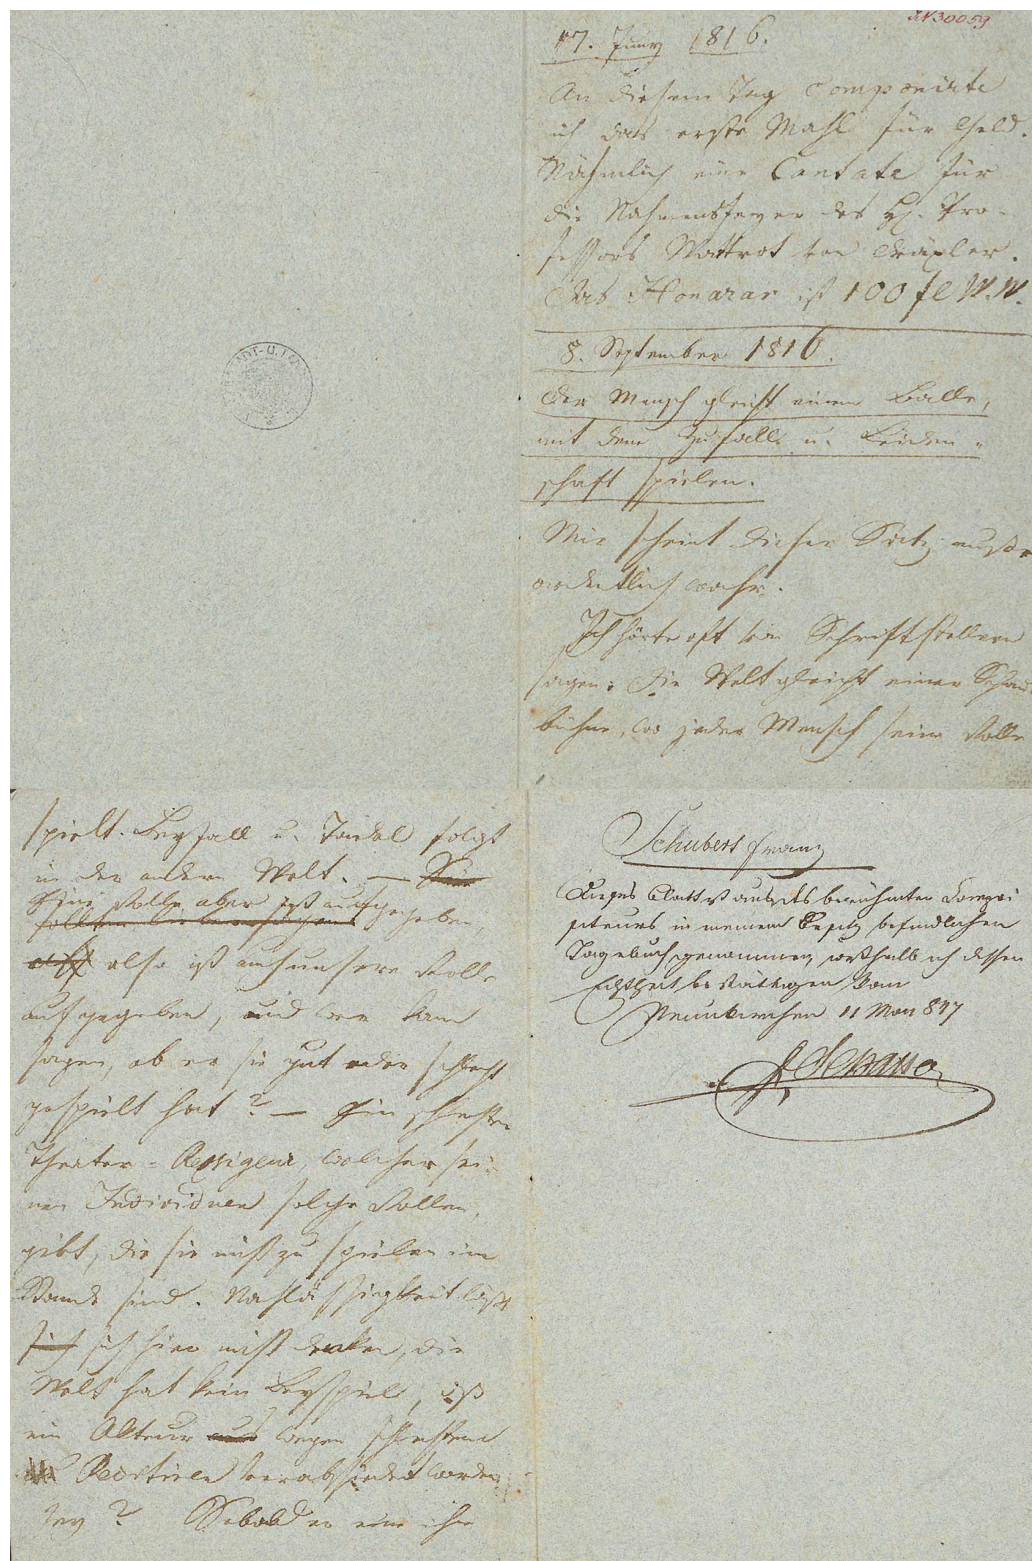 AN 30059
17. Juny 1816.
An diesem Tag componirte
ich das erste Mahl für Geld.
Nähmlich eine Cantate für
die Nahmensfeyer des H. Pro-
fessors Wattrot von Dräxler.
Das Honorar ist 100 fl W.W.
8. September 1816.
Der Mensch gleicht einem Balle,
mit dem Zufall u. Leiden-
schaft spielen.
Mir scheint dieser Satz außer
ordentlich wahr.
Ich hörte oft von Schriftstellern
sagen: Die Welt gleicht einer Schau
bühne, wo jeder Mensch seine Rolle
spielt. Beyfall u. Tadel folgt
in der andern Welt. —
Eine Rolle aber ist aufgegeben,
also ist auch unsere Rolle
aufgegeben, und wer kann
sagen, ob er sie gut oder schlecht
gespielt hat? — Ein schlechter
Theater-Regisseur, welcher sei-
nen Individuen solche Rollen
gibt, die sie nicht zu spielen im
Stande sind. Nachlässigkeit läßt
sich sich hier nicht denken, die
Welt hat kein Beyspiel, daß
ein Akteur wegen schlechtem
Recitiren verabschiedet worden
sey? Sobald er eine ihm
Schubert Franz
Dieses Blatt ist aus des berühmten Compo
siteurs in meinem Besitz befindlichen
Tagebuch genommen, weshalb ich dessen
Echtheit bestättigen kann
Neunkirchen 11 May 847